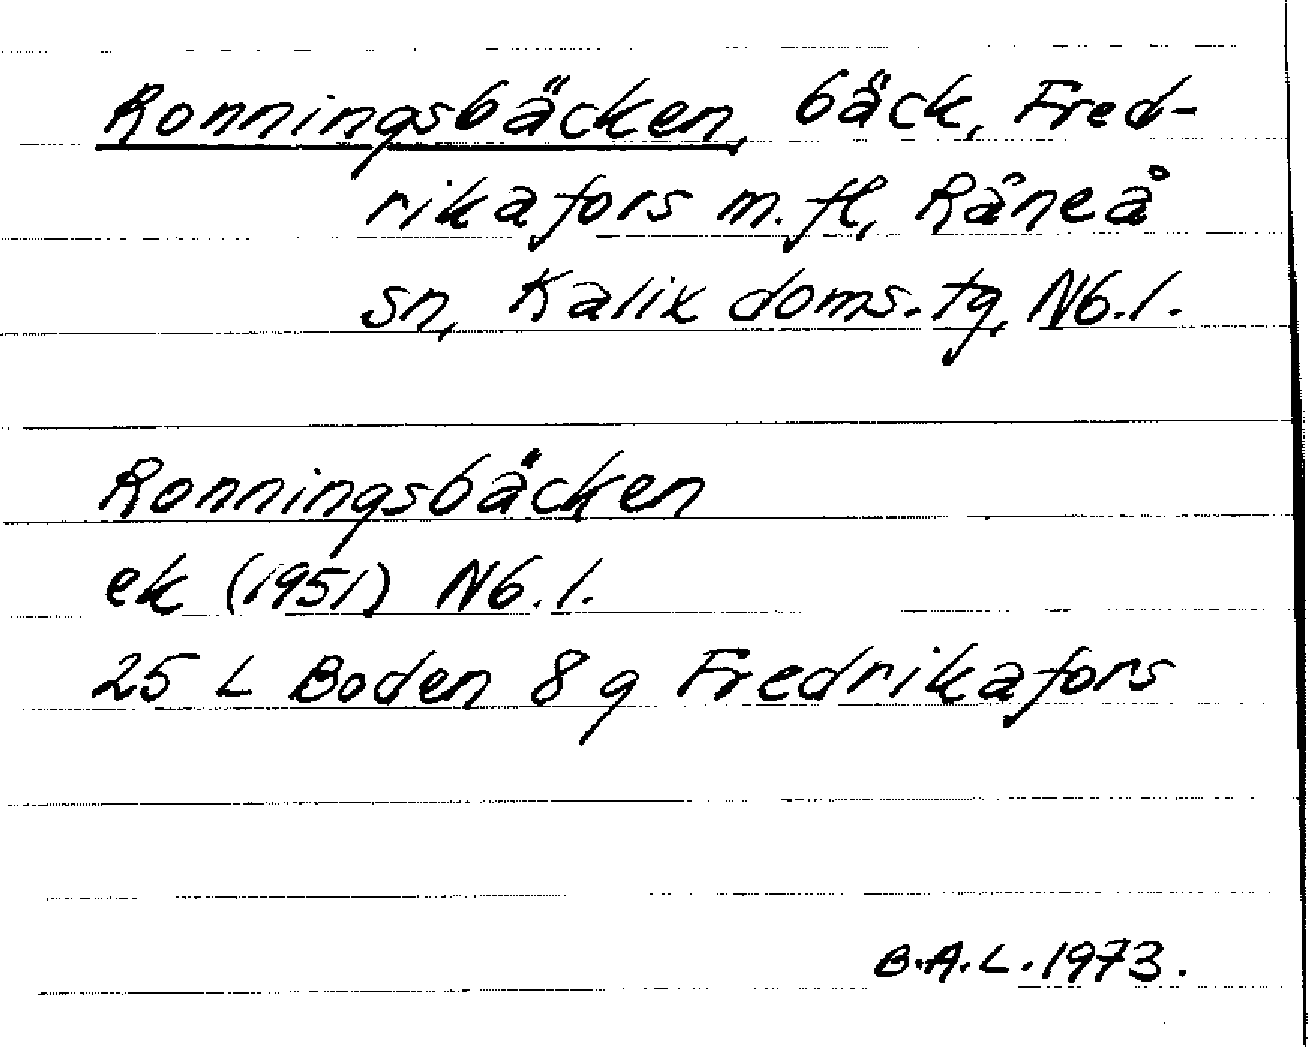 Ronningsbäcken, bäck, Fred-
rikafors m.fl, Råneå
sn, Kalix doms.tg, Nb.l.
Ronningsbäcken
ek (1951) Nb.l.
25 L Boden 8g Fredrikafors
B.A.L. 1973.